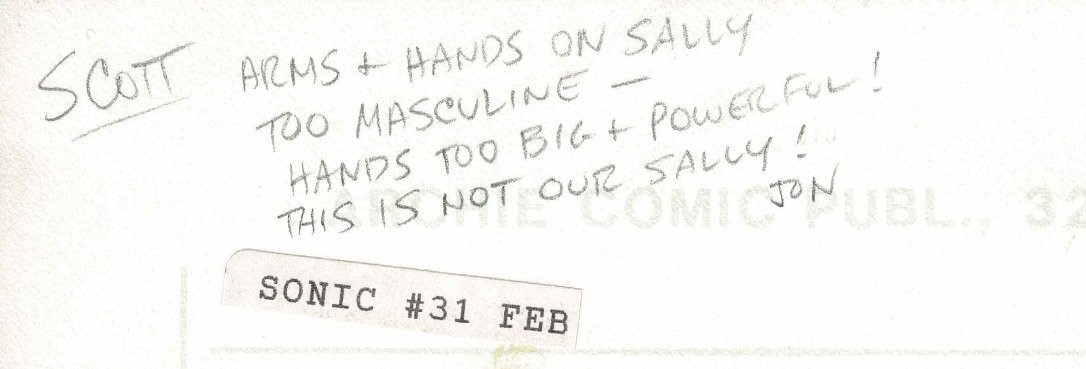 SCOTT
ARMS + HANDS ON SALLY
TOO MASCULINE —
HANDS TOO BIG + POWERFUL!
THIS IS NOT OUR SALLY!
JON
ARCHIE COMIC PUBL., 32
SONIC #31 FEB